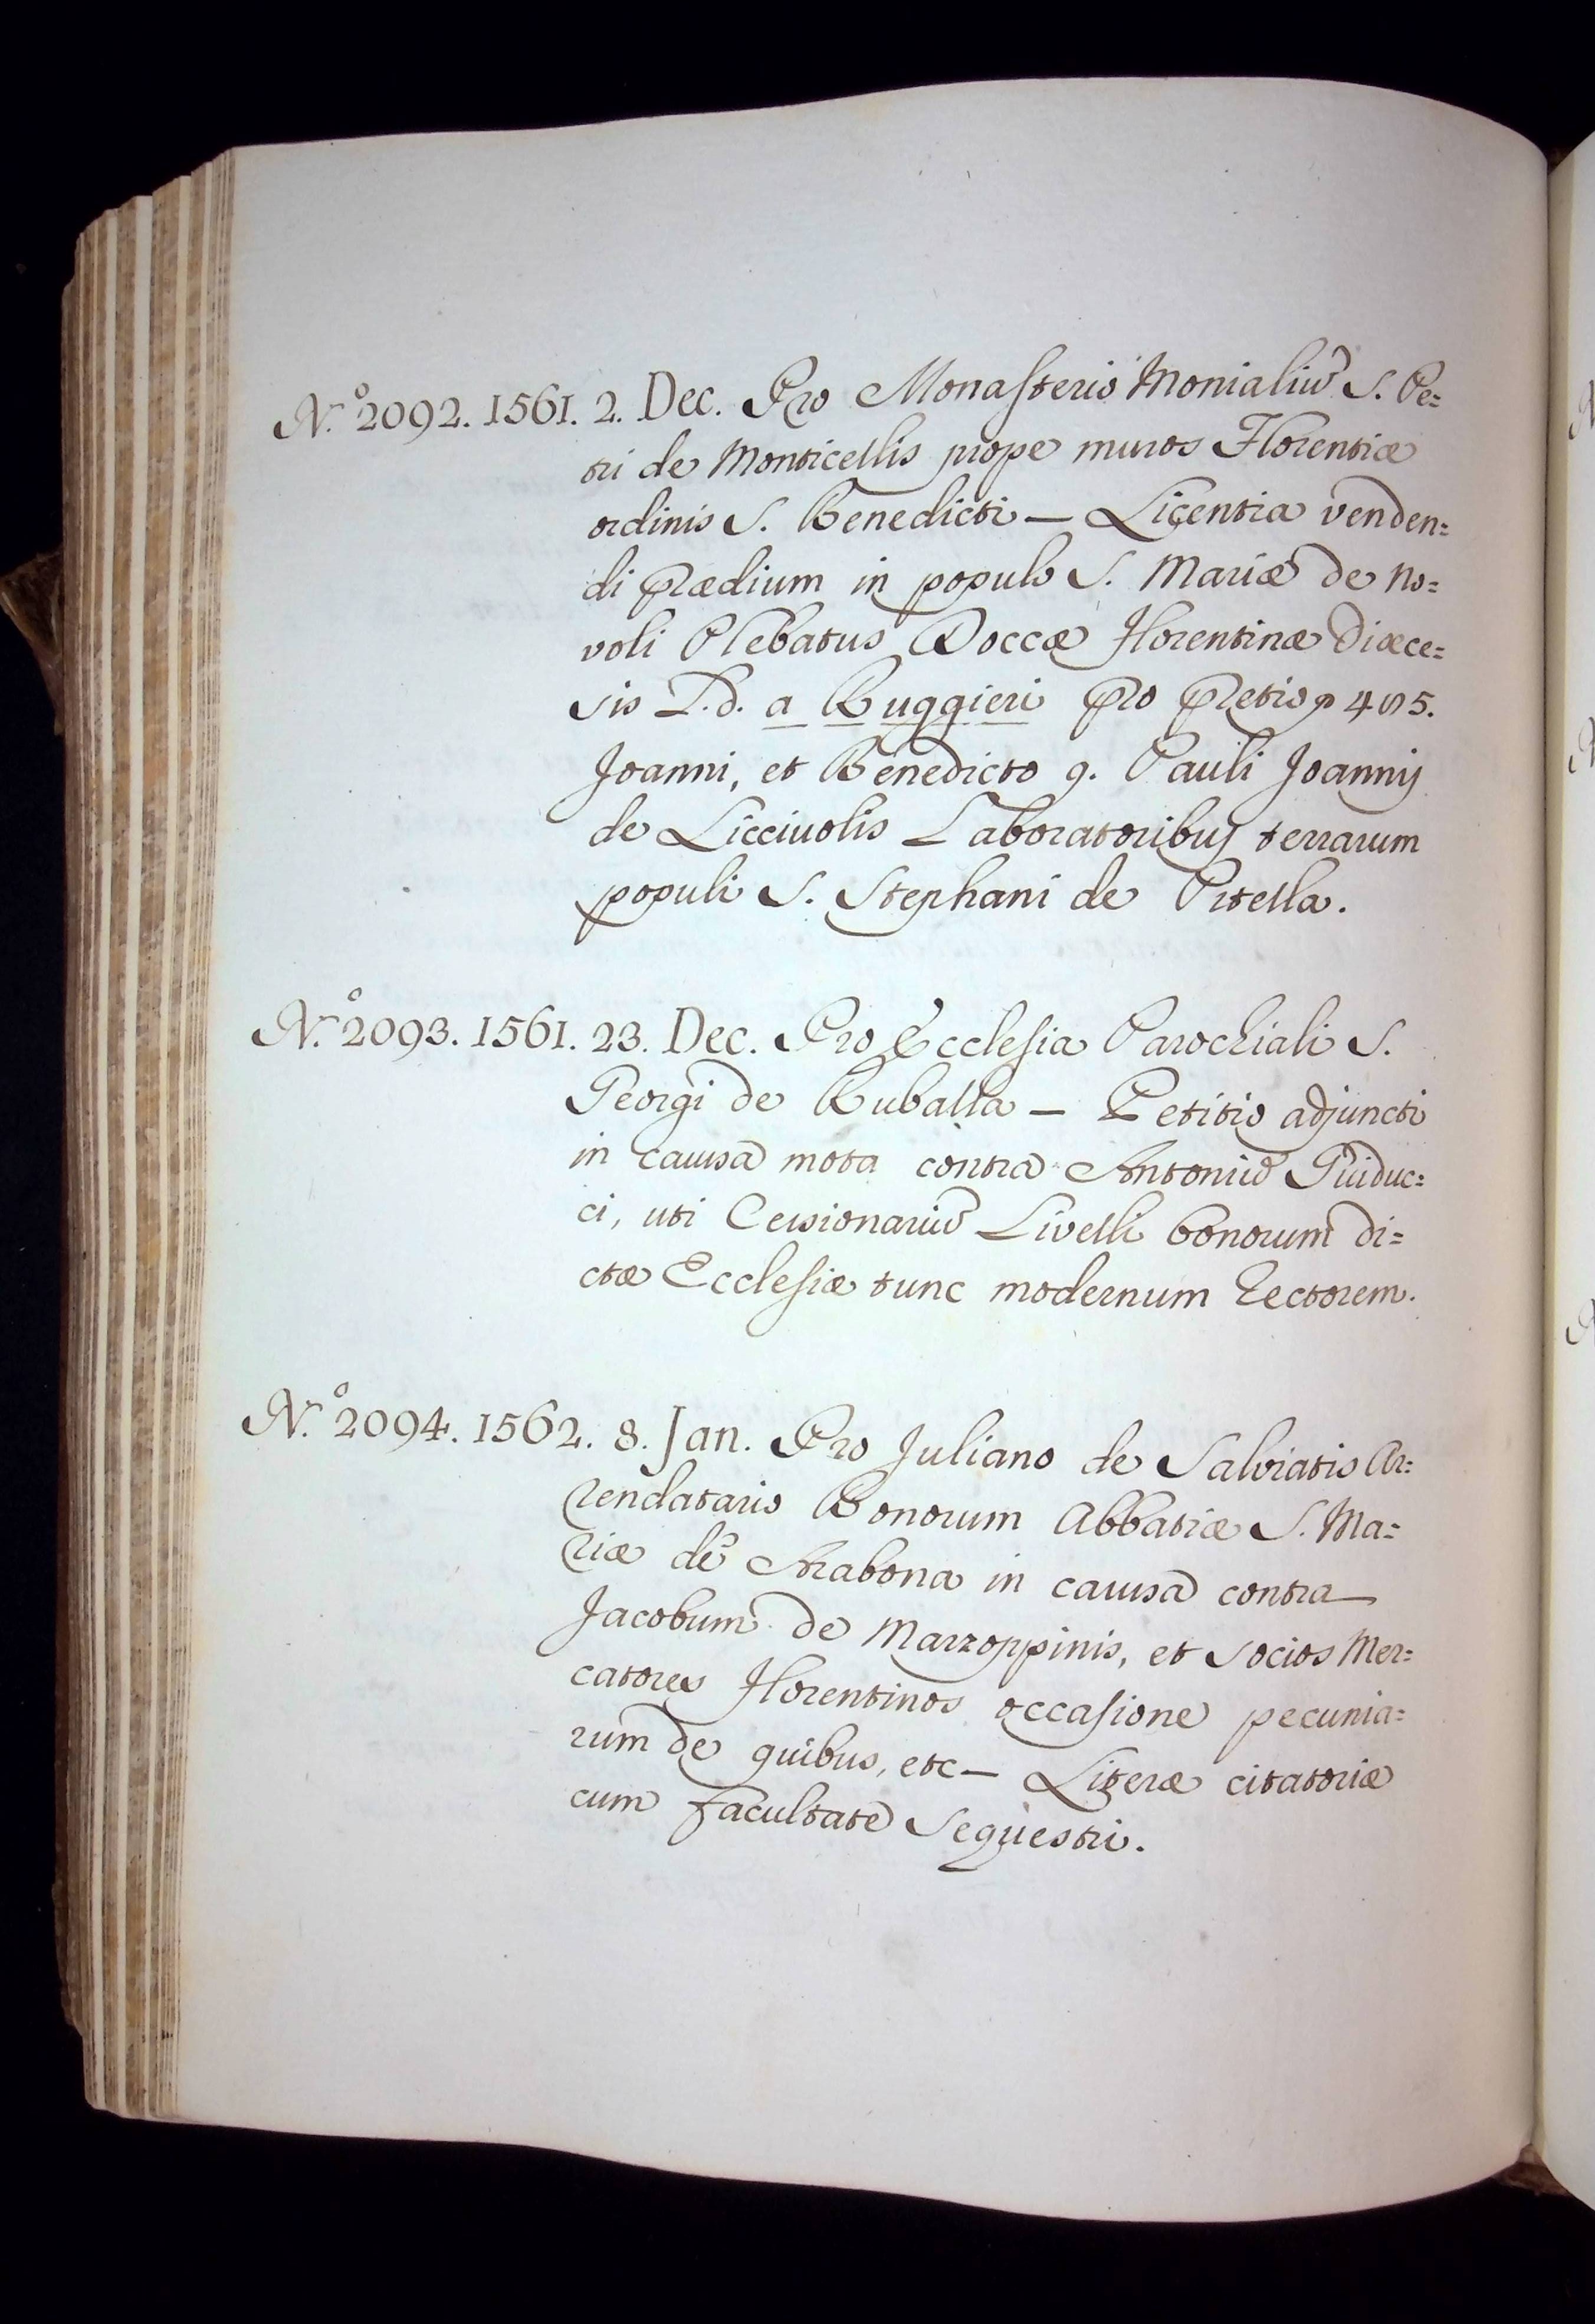 N.º 2092. 1561. 2. Dec. Pro Monasterio Monialiũ S. Pe=
tri de Monticellis prope muros Florentiæ
ordinis S. Benedicti — Licentia venden=
di prædium in populo S. Mariæ de No=
voli Plebatus Doccæ Florentinæ Diœce=
sis L.d. a Ruggieri pro pretio
Joanni, et Benedicto q. Pauli Joannis
de Licciuolis Laboratoribus terrarum
populi S. Stephani de Pitella.
N.º 2093. 1561. 23. Dec. Pro Ecclesia Parochiali S.
Georgi de Ruballa — Petitio adjuncti
in causa mota contra Antoniũ Guiduc=
ci, uti Cessionariũ Livelli bonorum di=
ctæ Ecclesiæ tunc modernum Rectorem.
N.º 2094. 1562. 8. Jan. Pro Juliano de Salviatis Ar=
rendatario Bonorum Abbatiæ S. Ma=
riæ de Arabona in causa contra
Jacobum de Marzoppinis, et Socios Mer=
catores Florentinos occasione pecunia=
rum de quibus, etc — Literæ citatoriæ
cum facultate Sequestri.